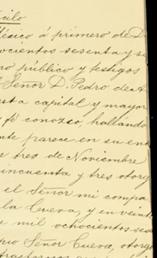 México á primero de D
ochocientos sesenta y se
ro público y testigos
Señor D. Pedro de A
esta capital y mayor
fé conozco, hallándo
ente parece en su ent
tres de Noviembre
incuenta y tres otorg
el Señor mi compa
la Cueva, y en veint
mil ochocientos ses
Señor Cueva, otorg